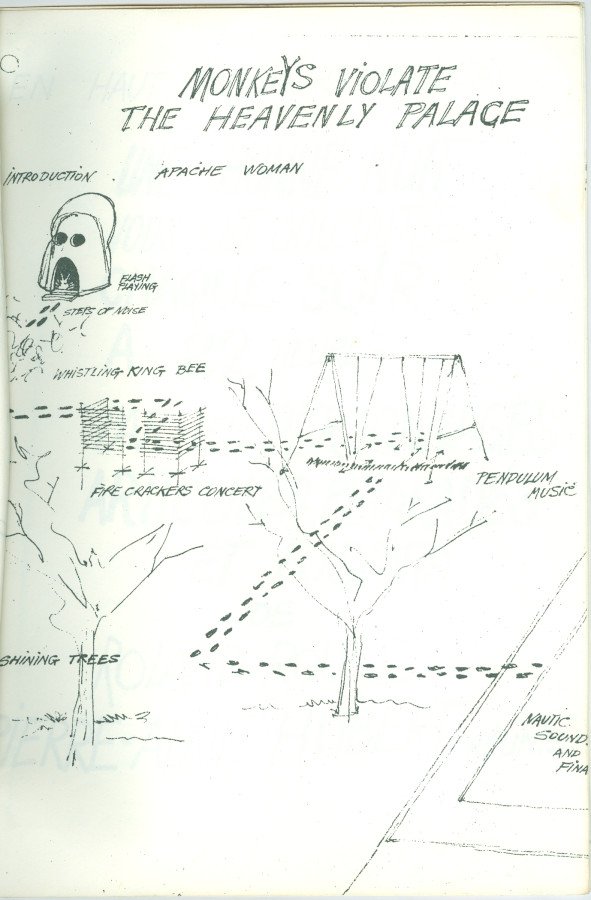 MONKEYS VIOLATE
THE HEAVENLY PALACE
INTRODUCTION
APACHE WOMAN
FLASH
PLAYING
STEPS OF NOISE
WHISTLING KING BEE
FIRE CRACKERS CONCERT
PENDULUM
MUSIC
SHINING TREES
NAUTIC
SOUND
AND
FINA